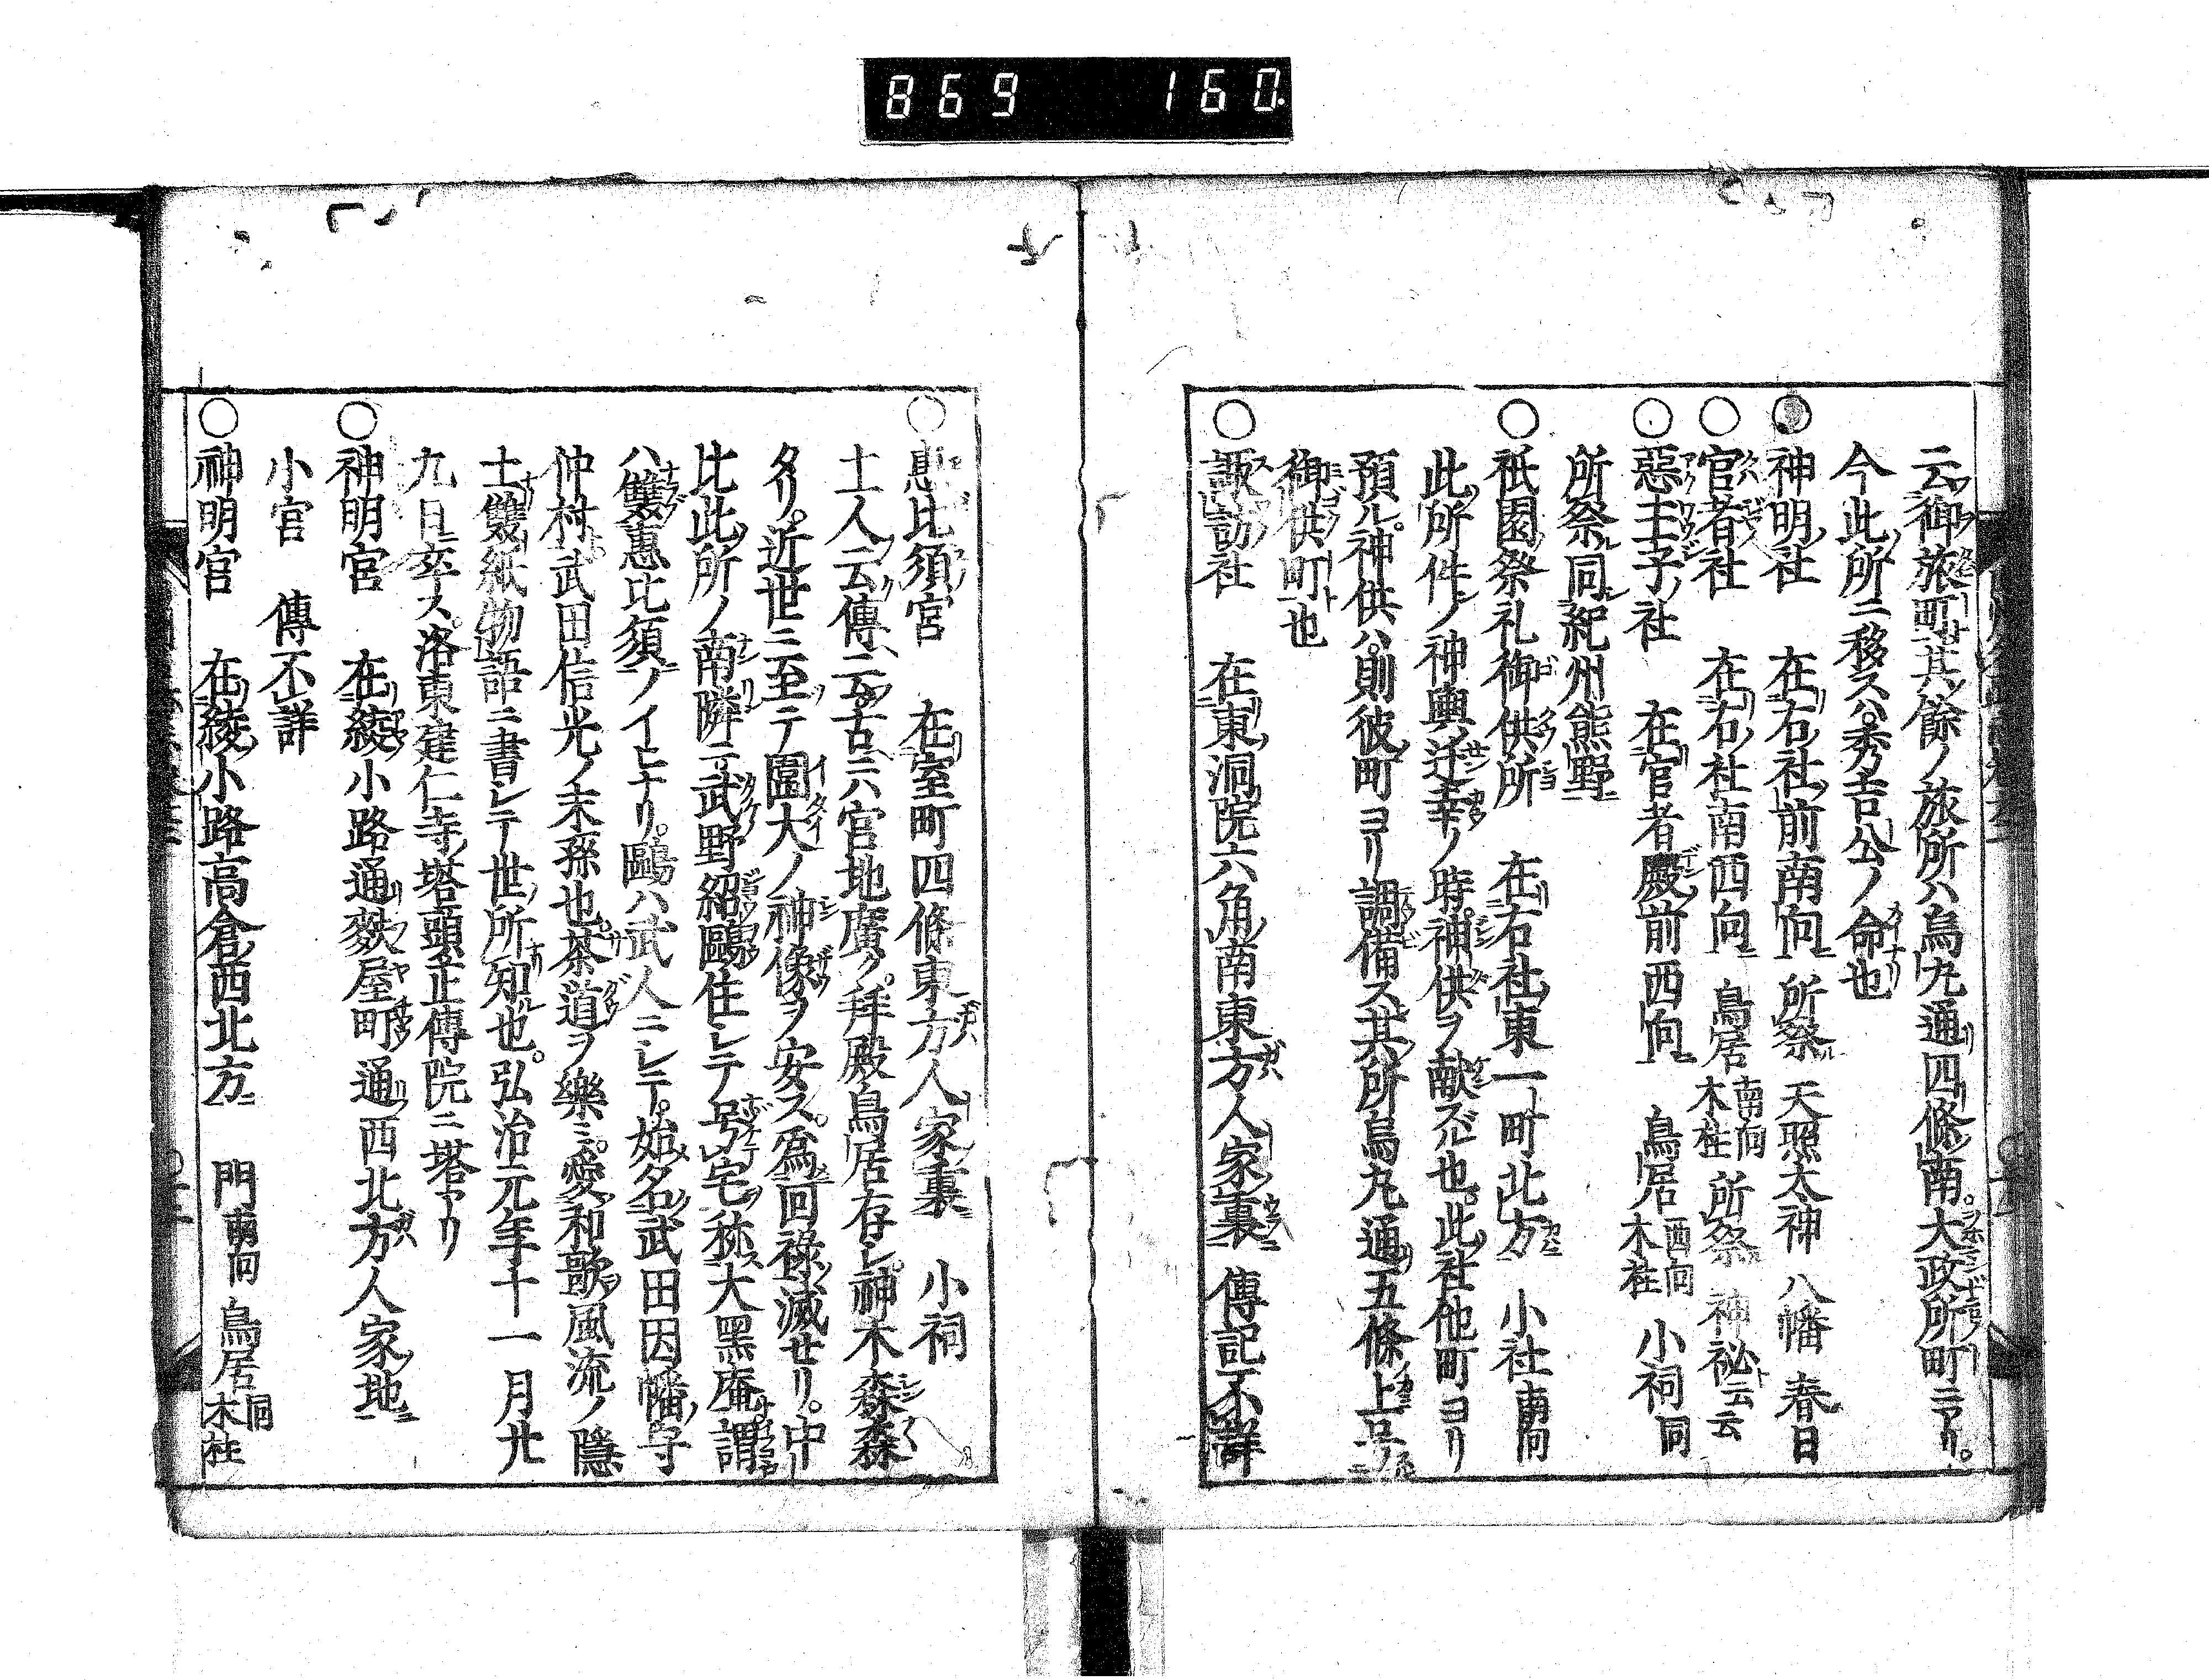 869 160.
云御旅町其餘ノ旅所ハ烏丸通四條南大政所町ニアリ
今此所ニ移スハ秀吉公ノ命也
○神明社 在右社前南向 所祭 天照太神 八幡 春日
○官者社 在右社南西向 鳥居南向木柱 所祭 神秘云云
○惡王子社 在官者殿前西向 鳥居西向木柱 小祠同
所祭同紀州熊野
○祇園祭礼御供所 在右社東一町北方 小社南向
此所件ノ神輿迁幸ノ時神供ヲ献ズル也此社他町ヨリ
預ル神供ハ則彼町ヨリ調備ス其所烏丸通五條上号
御供町也
○諏訪社 在東洞院六角南東方人家裏 傳記不詳
○惠比須宮 在室町四條東方人家裏 小祠
土人云傳云古ニハ宮地廣ク拜殿鳥居存シ神木森森
タリ近世ニ至テ圍大ノ神像ヲ安ス爲回祿滅セリ中
比此所ノ南隣ニ武野紹鷗住シテ号宅称大黑庵謂
ハ雙惠比須ノイヒナリ鷗ハ武人ニシテ始名武田因幡守
仲村武田信光ノ末孫也茶道ヲ樂ミ愛和歌風流ノ隱
士雙紙物語ニ書シテ世所知也弘治元年十一月廿
九日卒ス洛東建仁寺塔頭正傳院ニ塔アリ
○神明宮 在綾小路通麩屋町通西北方人家地
小宮 傳不詳
○神明宮 在綾小路高倉西北方 門南向 鳥居同木柱